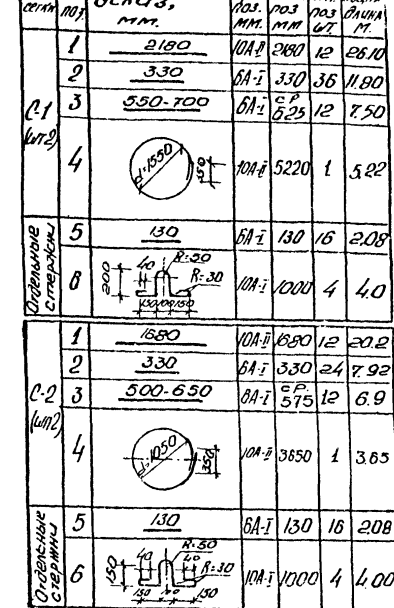 сетки поз. Эскиз, мм. поз. мм. поз мм поз шт. длина м.
С-1 (шт2)
1 2180 10А-II 2180 12 26.10
2 330 6А-I 330 36 11.90
3 550-700 6А-I ср 625 12 7.50
4 d=1550 350 10А-II 5220 1 5.22
Отдельные стержни
5 130 6А-I 130 16 2.08
6 200 40 R=50 R=30 150 100 150 10А-I 1000 4 4.0
С-2 (шт2)
1 1680 10А-II 1680 12 20.2
2 330 6А-I 330 24 7.92
3 500-650 8А-I ср. 575 12 6.9
4 d=1050 350 10А-II 3650 1 3.65
Отдельные стержни
5 130 6А-I 130 16 2.08
6 150 40 R=50 40 R=30 150 100 150 10А-I 1000 4 4.00